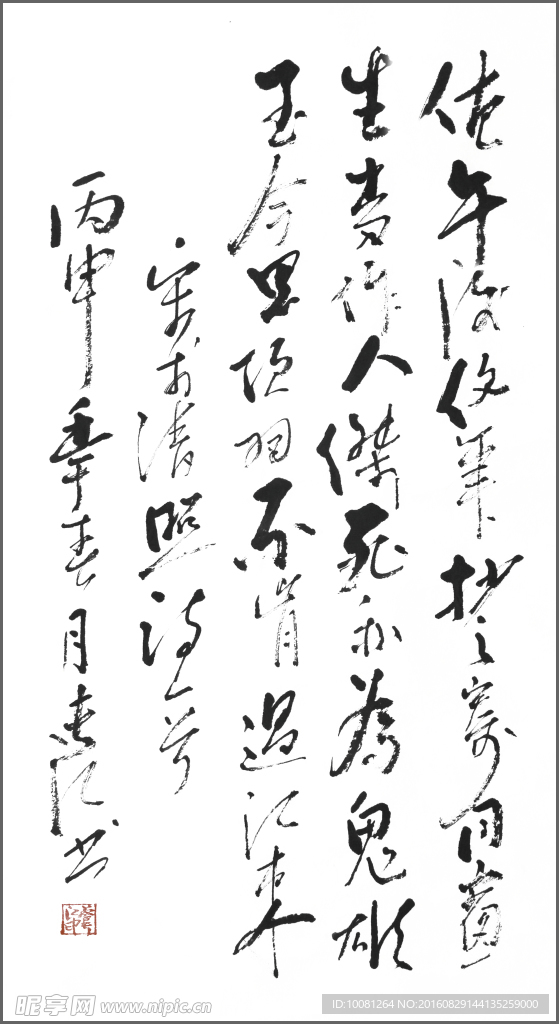 午 笔抄之寄同
生當作人傑死亦為鬼雄
至今思項羽不肯過江東
宋李清照詩一首
丙申年春月 江书
昵享网 www.nipic.cn
ID:10081264 NO:20160829144135259000